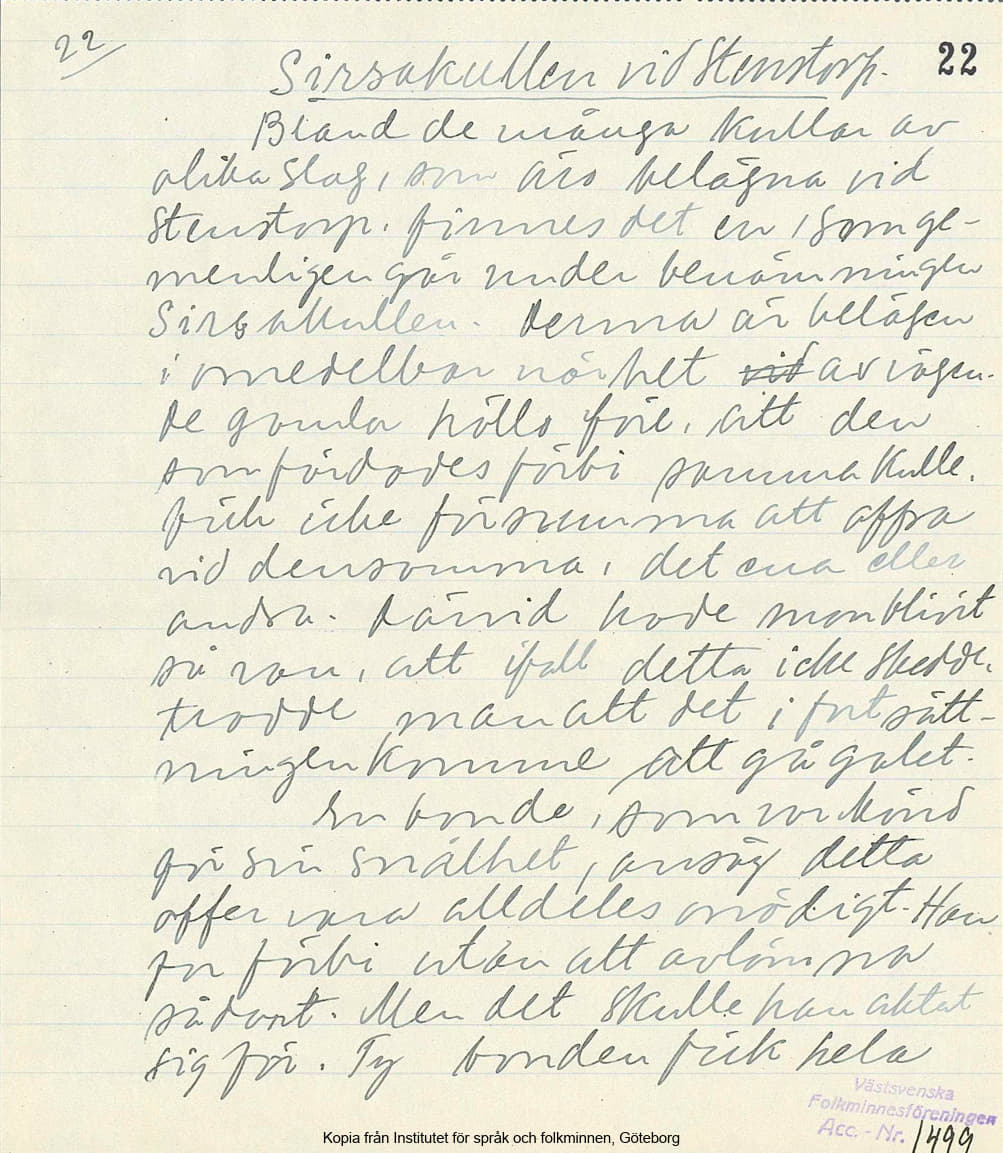 22
22
Sirsakullen vid Stenstorp.
Bland de många kullar av
olika slag, som äro belägna vid
Stenstorp, finnes det en, som ge-
menligen går under benämningen
Sirsakullen. Denna är belägen
i omedelbar närhet vid av vägen.
De gamla höllo före, att den
som färdades förbi samma kulle,
fick icke försumma att offra
vid densamma, det ena eller
andra. Därvid hade man blivit
så van, att ifall detta icke skedde,
trodde man att det i fortsätt-
ningen komme att gå galet.
En bonde, som var känd
för sin snålhet, ansåg detta
offer vara alldeles onödigt. Han
for förbi utan att avlämna
sådant. Men det skulle han aktat
sig för. Ty bonden fick hela
Västsvenska
Folkminnesföreningen
Acc. - Nr. 1499
Kopia från Institutet för språk och folkminnen, Göteborg